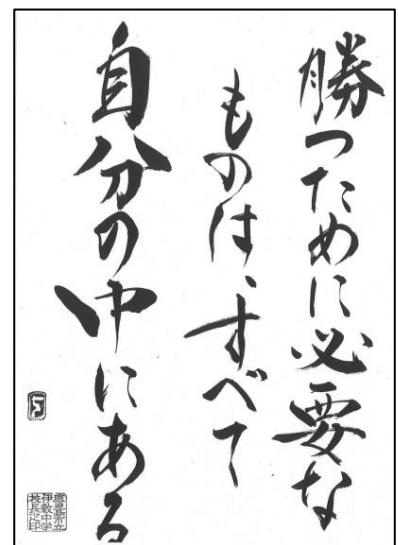 勝つために必要な
ものは、すべて
自分の中にある